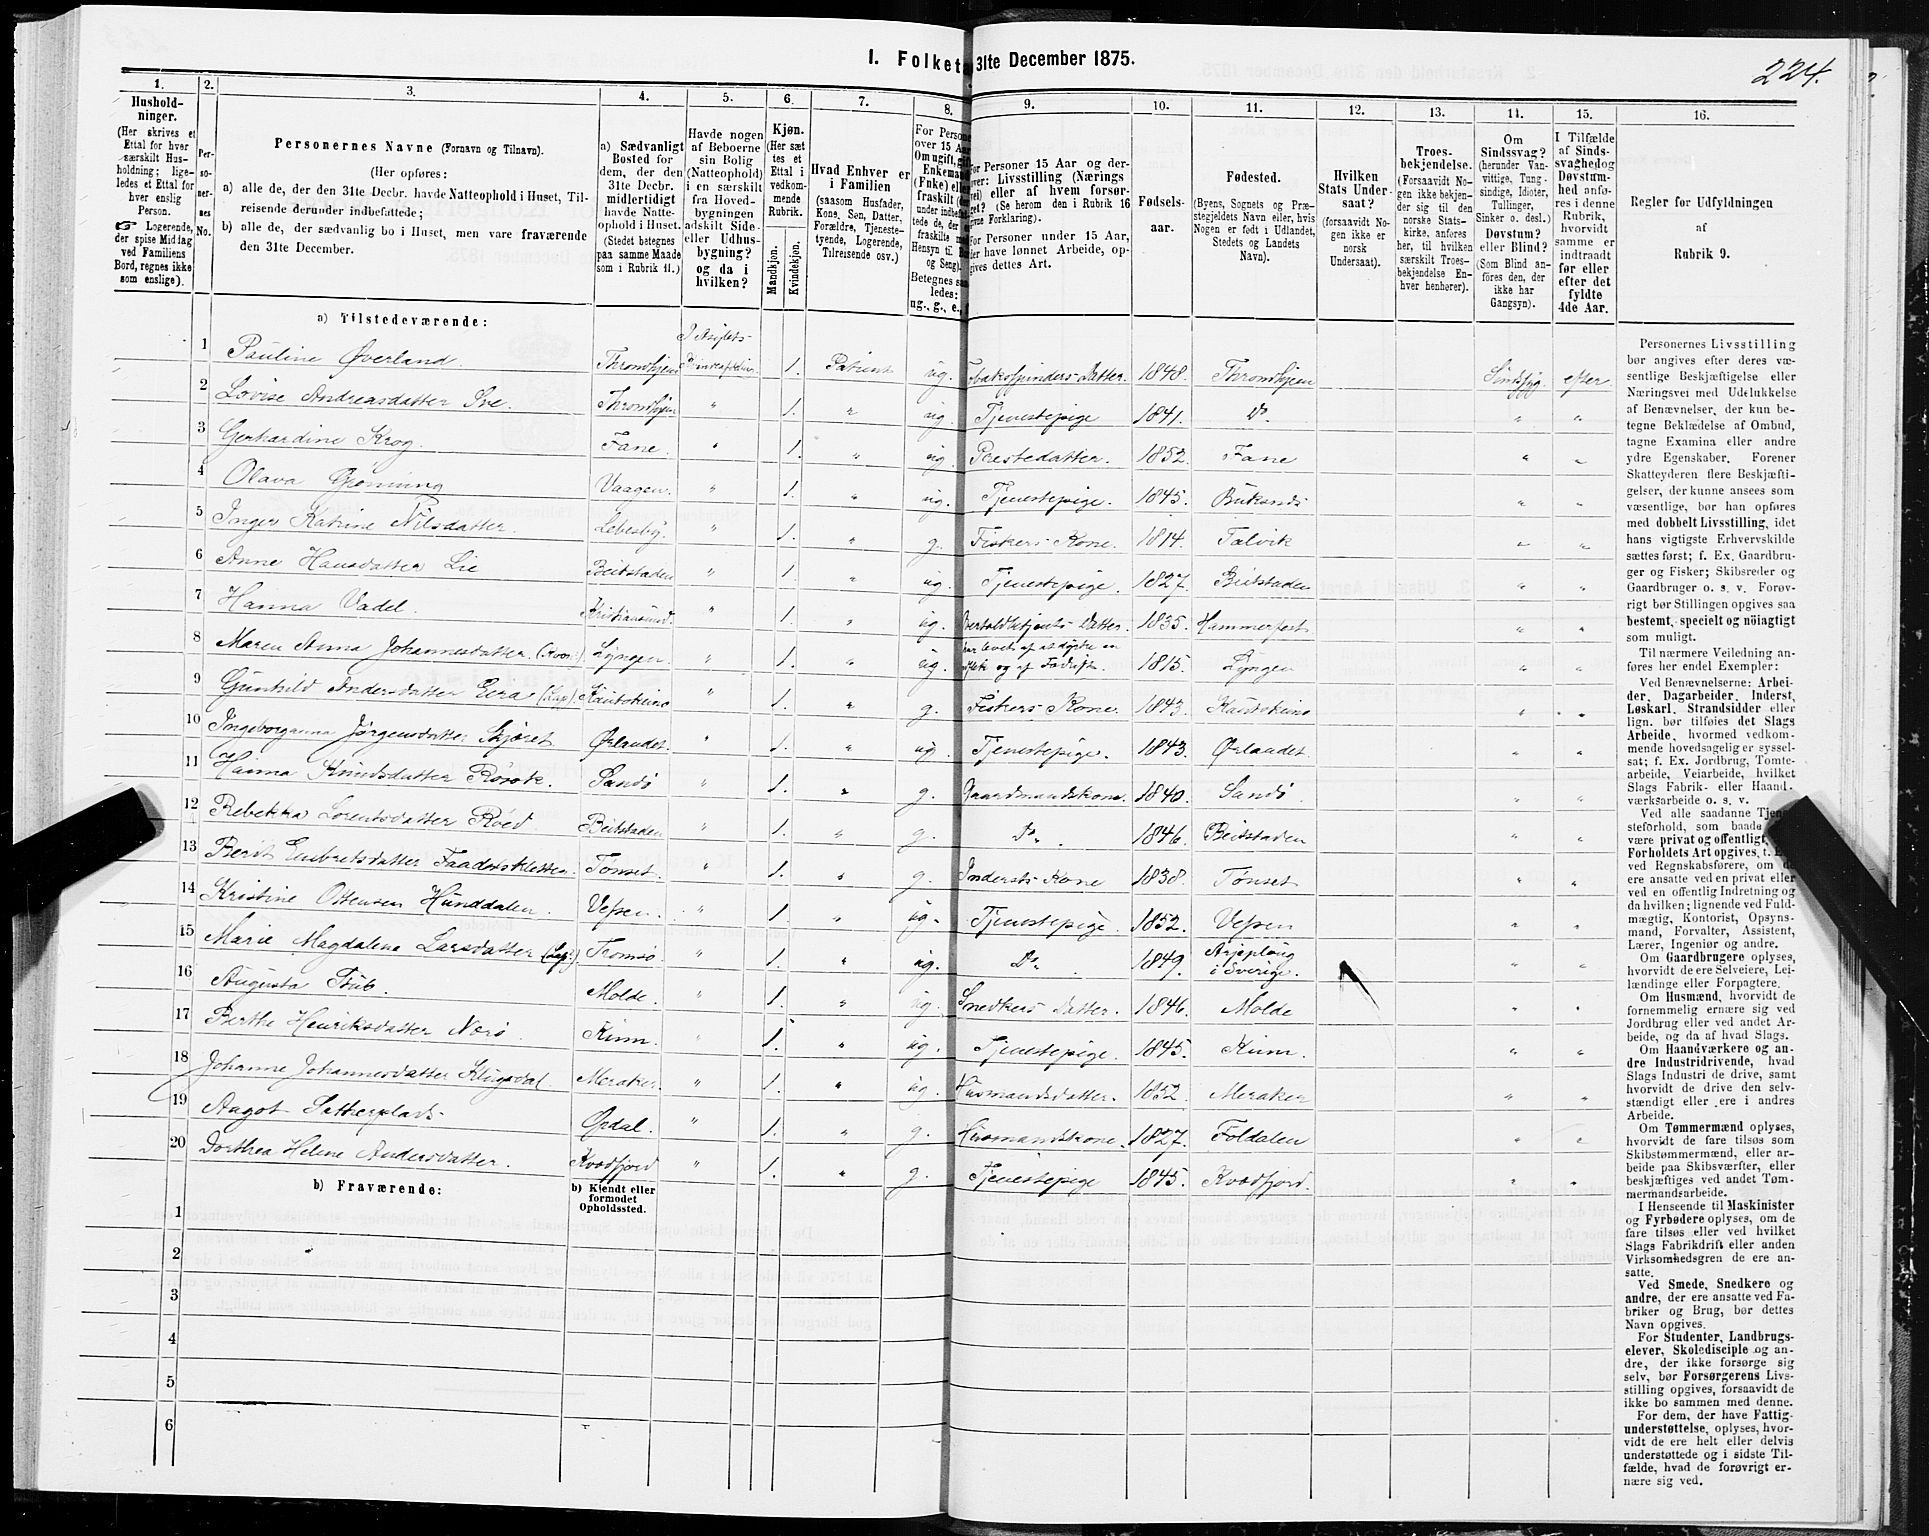 I. Folket
31te December 1875.
224.
1.
Hushold-
ninger.
(Her skrives et
Ettal for hver
særskilt Hus-
holdning; lige-
ledes et Ettal for
hver enslig
Person.
☞ Logerende,
der spise Middag
ved Familiens
Bord, regnes ikke
som enslige).
2.
Per-
so-
ner-
nes
No.
3.
Personernes Navne (Fornavn og Tilnavn).
(Her opføres:
a) alle de, der den 31te Decbr. havde Natteophold i Huset, Til-
reisende derunder indbefattede;
b) alle de, der sædvanlig bo i Huset, men vare fraværende
den 31te December.
4.
a) Sædvanligt
Bosted for
dem, der den
31te Decbr.
midlertidigt
havde Natte-
ophold i Huset.
(Stedet betegnes
paa samme Maade
som i Rubrik 11.)
5.
Havde nogen
af Beboerne
sin Bolig
(Natteophold)
i en særskilt
fra Hoved-
bygningen
adskilt Side-
eller Udhus-
bygning?
og da i
hvilken?
6.
Kjøn.
(Her sæt-
tes et
Ettal i
vedkom-
mende
Rubrik.
Mandkjøn.
Kvindekjøn.
7.
Hvad Enhver er
i Familien
(saasom Husfader,
Kone, Søn, Datter,
Forældre, Tjeneste-
tyende, Logerende,
Tilreisende osv.)
8.
For Persone
over 15 Aar
Om ugift, gift
Enkema
(Enke) elle
fraskilt
Betegnes saa
ledes:
ug., g., e.,
9.
For Personer 15 Aar og der-
over: Livsstilling (Nærings
vei) eller af hvem forsør-
get? (Se herom den i Rubrik 16
givne Forklaring).
For Personer under 15 Aar,
der have lønnet Arbeide, op-
gives dettes Art.
10.
Fødsels-
aar.
11.
Fødested.
(Byens, Sognets og Præ-
stegjeldets Navn eller, hvis
Nogen er født i Udlandet,
Stedets og Landets
Navn).
12.
Hvilken
Stats Under-
saat?
(forsaavidt No-
gen ikke er
norsk
Undersaat).
13.
Troes-
bekjendelse.
(Forsaavidt No-
gen ikke bekjen-
der sig til den
norske Stats-
kirke, anføres
her, til hvilken
særskilt Troes-
bekjendelse En-
hver henhører).
14.
Om
Sindssvag?
(herunder Van-
vittige, Tung-
sindige, Idioter,
Tullinger,
Sinker o. desl.)
Døvstum?
eller Blind?
(Som Blind an-
føres den, der
ikke har
Gangsyn).
15.
I Tilfælde
af Sinds-
svaghedog
Døvstum-
hed anfø-
res i denne
Rubrik,
hvorvidt
samme er
indtraadt
før eller
efter det
fyldte
4de Aar.
16.
Regler for Udfyldningen
af
Rubrik 9.
a) Tilstedeværende:
1 Pauline Øverland. Throndhjem I Asylets Kvindeafdeling 1. Patient ug. Tobaksspinders Datter. 1848. Throndhjem Sindssyg efter.
2 Lovise Andreasdatter Sve. Throndhjem " 1. " ug. Tjenestepige 1841. Do. " "
3 Gerhardine Krog. Fane. " 1. " ug. Prestedatter. 1852. Fane " "
4 Olava Grønning Vaagen. " 1. " ug. Tjenestepige. 1845. Buksnds " "
5 Inger Katrine Nilsdatter. Lebesby. " 1. " g. Fiskers Kone. 1814. Talvik " "
6 Anne Hansdatter Lie Beitstaden " 1. " ug. Tjenestepige. 1827. Beitstaden " "
7 Hanna Vadel. Kristiansund. " 1. " ug. Datter. 1835. Hammerfest " "
8 Maren Anna Johannesdatter. (Kvæn) Lyngen. " 1. " ug. har levet af at dyrke en og af Fædrift. 1815. Lyngen " "
9 Gunhild Andersdatter Eira (Lap). Kautokeino " 1. " g. Fiskers Kone. 1843. Kautokeino " "
10 Ingeborganna Jørgensdatter Skjæret Ørlandet. " 1. " ug. Tjenestepige. 1843. Ørlandet " "
11 Hanna Knudsdatter Sandø " 1. " g. Gaardmandskone. 1840. Sandø. " "
12 Rebekka Lorentsdatter Røed. Beitstaden " 1. " g. Do. 1846. Beitstaden " "
13 Berit Embretsdatter Tønset. " 1. " g. Inderst's Kone 1838. Tønset " "
14 Kristine Ottensen Hunddalen. Vefsen. " 1. " ug. Tjenestepige. 1852. Vefsen " "
15 Marie Magdalena Larsdatter (Lap.) Tromsø. " 1. " ug. Do. 1849. Arjeploug i Sverige. " "
16 Augusta Stub. Molde. " 1. " ug. Snedkers Datter. 1846. Molde " "
17 Berthe Henriksdatter Nærø. Kinn. " 1. " ug. Tjenestepige. 1845. Kinn. " "
18 Johanne Johannesdatter Meraker. " 1. " ug. Husmandsdatter. 1852. Meraker " "
19 Aagot Opdal. " 1. " g. Husmandskone. 1827. Foldalen " "
20 Dorthea Heline Andersdatter. Kvædfjord " 1. " g. Tjenestepige 1845. Kvædfjord. " "
b) Fraværende:
b) Kjendt eller
formodet
Opholdssted.
1
2
3
4
5
6
Personernes Livsstilling
bør angives efter deres væ-
sentlige Beskjæftigelse eller
Næringsvei med Udelukkelse
af Benævnelser, der kun be-
tegne Beklædelse af Ombud,
tagne Examina eller andre
ydre Egenskaber. Forener
Skatteyderen flere Beskjæfti-
gelser, der kunne ansees som
væsentlige, bør han opføres
med dobbelt Livsstilling, idet
hans vigtigste Erhvervskilde
sættes først; f. Ex. Gaardbru-
ger og Fisker; Skibsreder og
Gaardbruger o. s. v. Forøv-
rigt bør Stillingen opgives saa
bestemt, specielt og nöiagtigt
som muligt.
Til nærmere Veiledning an-
føres her endel Exempler:
Ved Benævnelserne: Arbei-
der, Dagarbeider, Inderst,
Løskarl, Strandsidder eller
lign. bør tilføies det Slags
Arbeide, hvormed vedkom-
mende hovedsagelig er syssel-
sat; f. Ex. Jordbrug, Tomte-
arbeide, Veiarbeide, hvilket
Slags Fabrik- eller Haand-
værksarbeide o. s. v.
Ved alle saadanne Tjene-
steforhold, som baade
være privat og offentligt,
Forholdets Art opgives, t.
ved Regnskabsførere, om de
ere ansatte ved en privat eller
ved en offentlig Indretning og
da hvilken; lignende ved Fuld-
mægtig, Kontorist, Opsyns-
mand, Forvalter, Assistent,
Lærer, Ingeniør og andre.
Om Gaardbrugere oplyses,
hvorvidt de ere Selveiere, Lei-
lændinge eller Forpagtere.
Om Husmænd, hvorvidt de
fornemmelig ernære sig ved
Jordbrug eller ved andet Ar-
beide, og da af hvad Slags.
Om Haandværkere og an-
dre Industridrivende, hvad
Slags Industri de drive, samt
hvorvidt de drive den selv-
stændigt eller ere i andres
Arbeide.
Om Tømmermænd oplyses,
hvorvidt de fare tilsøs som
Skibstømmermænd, eller ar-
beide paa Skibsværfter, eller
beskjæftiges ved andet Tøm-
mermandsarbeide.
I Henseende til Maskinister
og Fyrbødere oplyses, om de
fare tilsøs eller ved hvilket
Slags Fabrikdrift eller anden
Virksomhedsgren de ere an-
satte.
Ved Smede, Snedkere og
andre, der ere ansatte ved Fa-
briker og Brug, bør dettes
Navn opgives.
For Studenter, Landbrugs-
elever, Skoledisciple og an-
dre, der ikke forsørge sig
selv, bør Forsørgerens Livs-
stilling opgives, forsaavidt de
ikke bo sammen med denne.
For dem, der have Fattig-
understøttelse, oplyses, hvor-
vidt de ere helt eller delvis
understøttede og i sidste Til-
fælde, hvad de forøvrigt er-
nære sig ved.